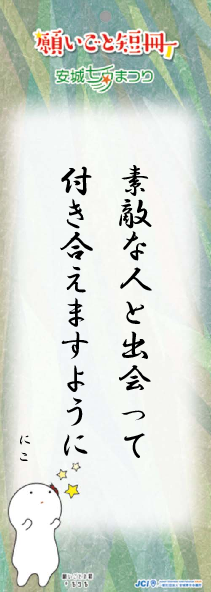 願いごと短冊
安城七夕まつり
素敵な人と出会って
付き合えますように
にこ
JCI